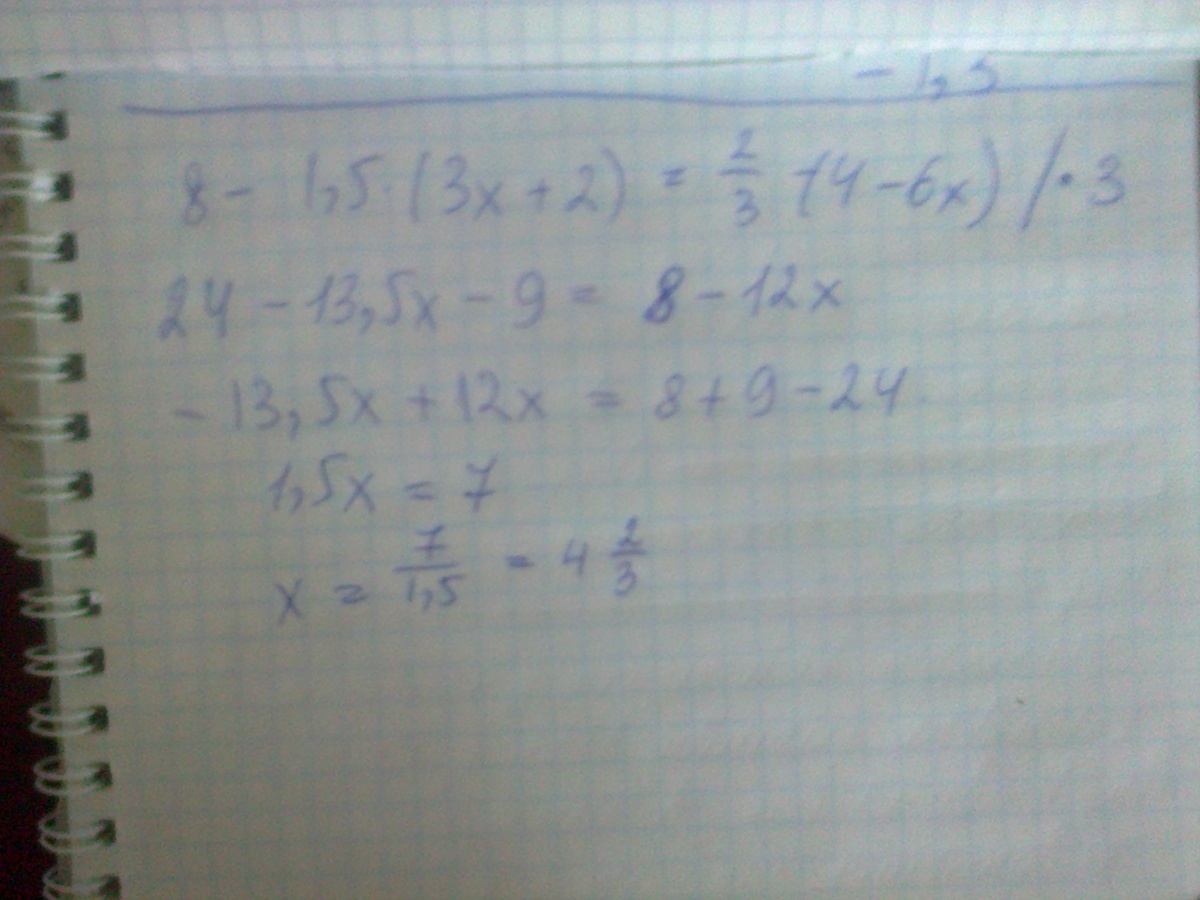 - 1,5
8 - 1,5·(3x+2) = 2/3 ·(4-6x) /·3
24 - 13,5x - 9 = 8 - 12x
- 13,5x + 12x = 8+9-24
1,5x = 7
x = 7/1,5 = 4 2/3